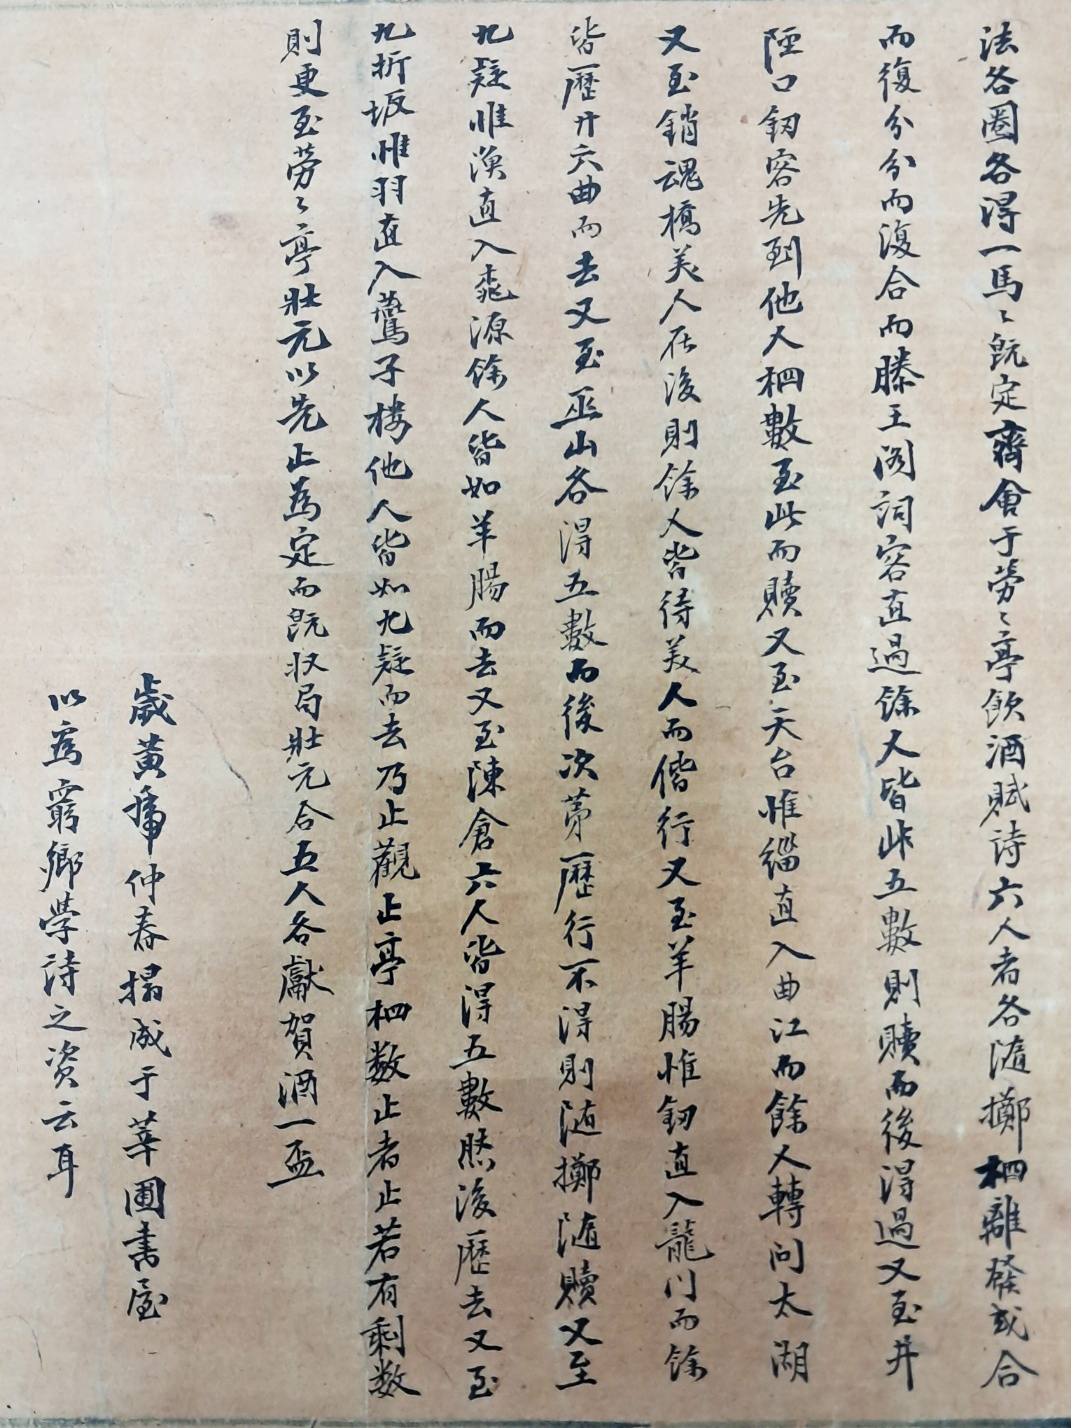 法各圈各得一馬〻旣定齊會于勞〻亭飮酒賦詩六人者各隨擲柶離發或合
而復分分而復合而滕王閣詞客直過餘人皆此五數則贖而後得過又至井
陘口釰客先到他人柶數至此而贖又至天台惟緇直入曲江而餘人轉向太湖
又至銷魂橋美人在後則餘人皆待美人而偕行又至羊膓惟釰直入龍门而餘
皆歷廾六曲而去又至巫山各得五數而後次第歷行不得則随擲随贖又至
九疑惟漁直入桃源餘人皆如羊膓而去又至陳倉六人皆得五數然後歷去又至
九折坂惟羽直入鶯子樓他人皆如九疑而去乃止觀止亭柶数止者止若有剩数
則更至勞〻亭壯元以先止爲定而旣收局壯元合五人各獻賀酒一盃
歲黃乕仲春搨成于莘圃書屋
以爲窮鄉學詩之資云耳